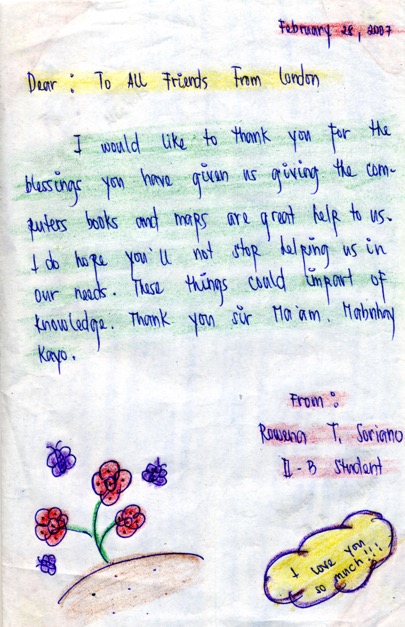 February 28, 2007
Dear : To All Friends From London
I would like to thank you for the
blessings you have given us giving the com-
puters books and maps are great help to us.
I do hope you'll not stop helping us in
our needs. These things could impart of
knowledge. Thank you sir Ma'am. Mabuhay
Kayo.
From :
Rowena T. Soriano
II - B Student
I love you
so much!!!